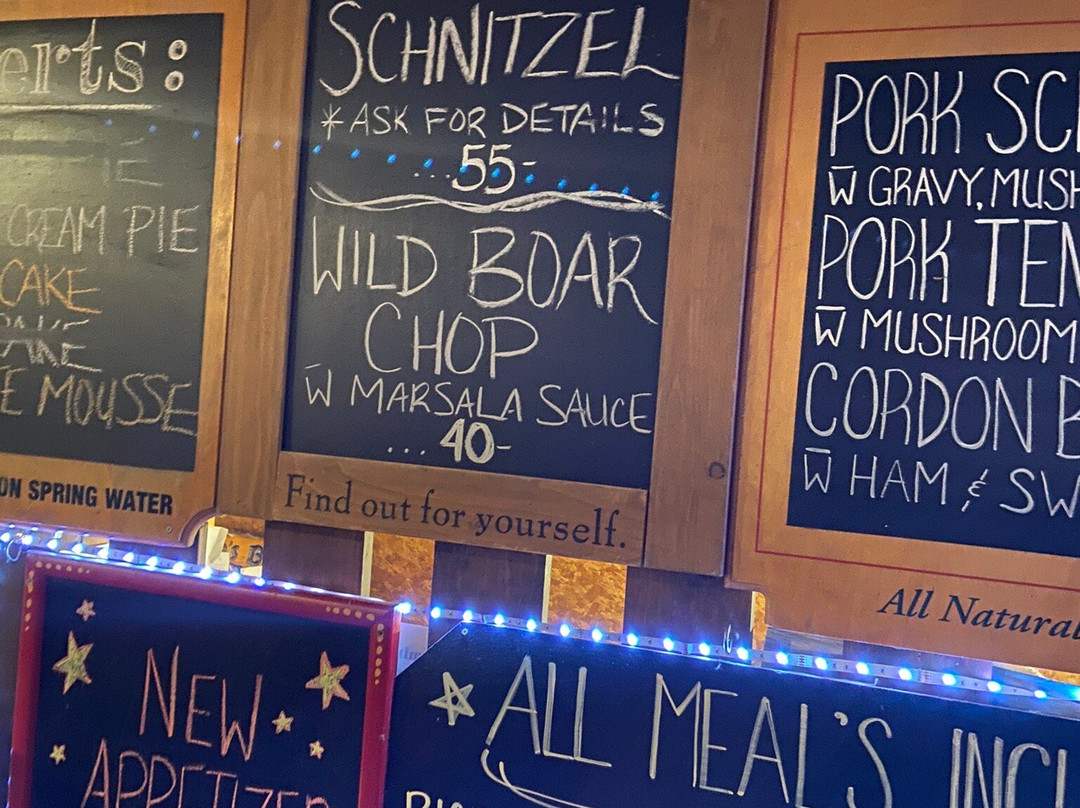 erts:
CREAM PIE
CAKE
CAKE
E MOUSSE
ON SPRING WATER
SCHNITZEL
*ASK FOR DETAILS
...55-
WILD BOAR
CHOP
W̅ MARSALA SAUCE
...40-
Find out for yourself.
PORK SC
W̅ GRAVY, MUSH
PORK TEN
W̅ MUSHROOM
CORDON B
W̅ HAM & SW
All Natural
NEW
APPETIZER
ALL MEAL'S INCL